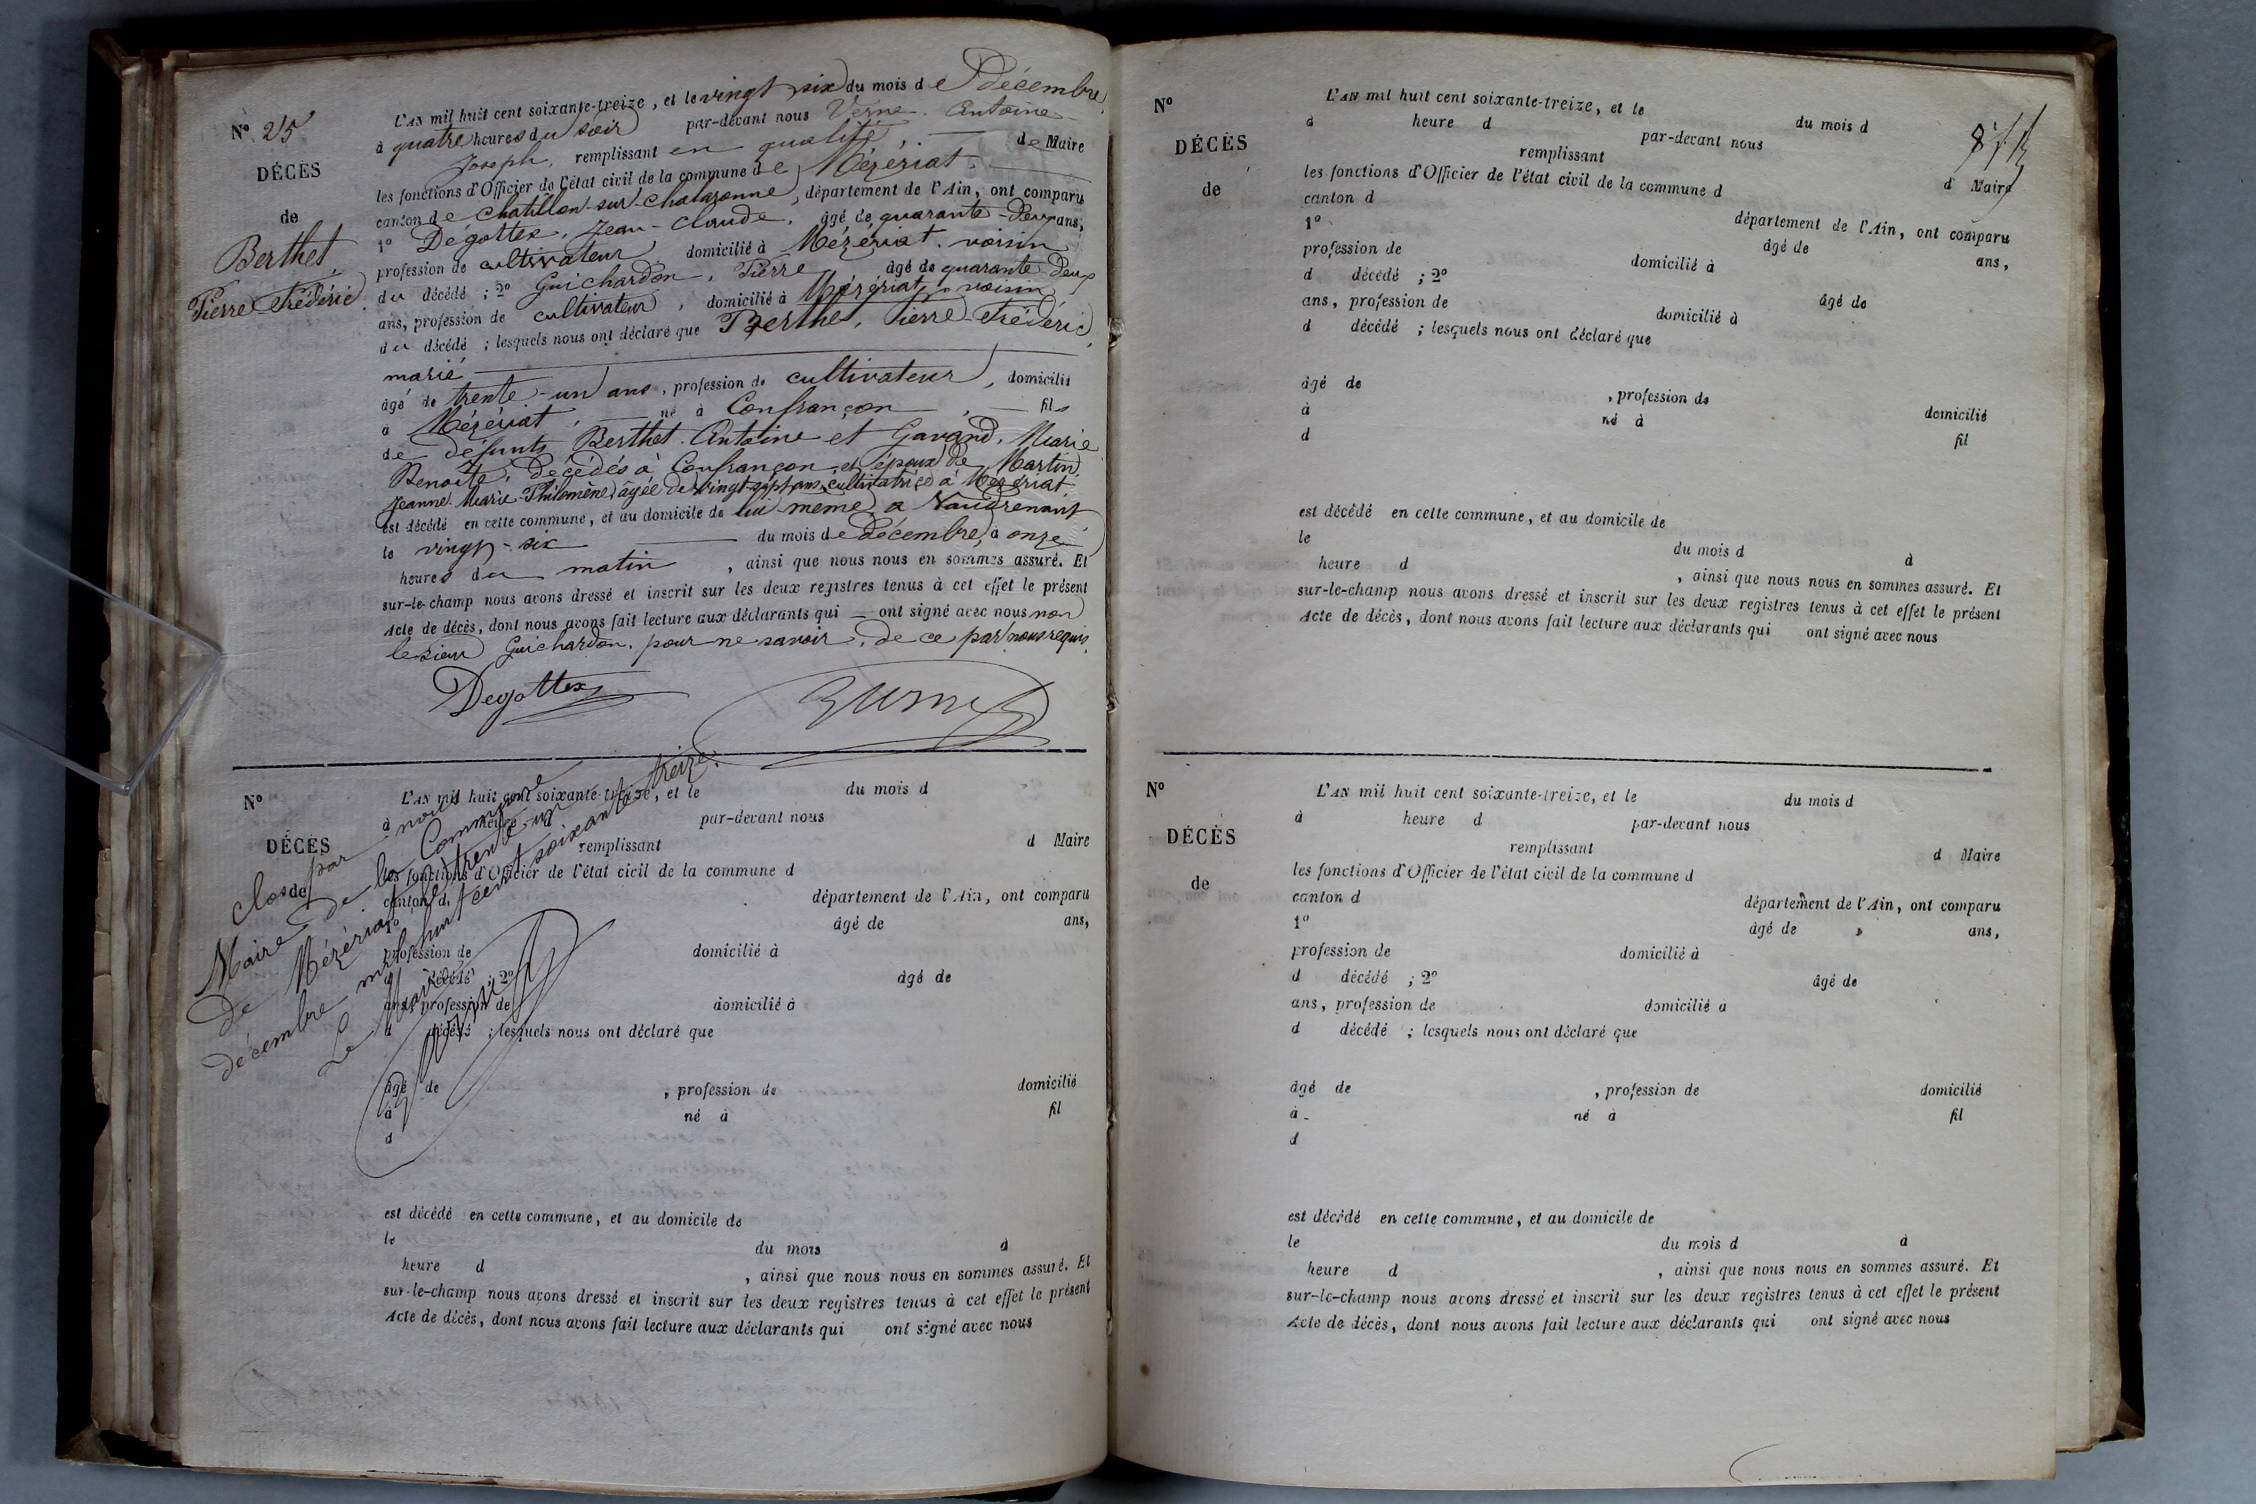 N° 25
DÉCÈS
de
Berthet
Pierre Frédéric
L'AN mil huit cent soixante-treize, et le vingt six du mois de Décembre
à quatre heures du soir par-devant nous Verne Antoine
Joseph, remplissant en qualité de Maire
les fonctions d'Officier de l'état civil de la commune de Mézériat
canton de Chatillon-sur-Chalaronne, département de l'Ain, ont comparu
1° Degottex, Jean-Claude, âgé de quarante-deux ans,
profession de cultivateur domicilié à Mézériat, voisin
du décédé ; 2° Guichardon, Pierre âgé de quarante deux
ans, profession de cultivateur, domicilié à Mézériat, voisin
du décédé ; lesquels nous ont déclaré que Berthet, Pierre Frédéric,
marié
âgé de trente-un ans, profession de cultivateur, domicilié
à Mézériat, né à Confrançon, fils
de défunts Berthet Antoine et Gavand, Marie
Benoite, décédés à Confrançon, et époux de Martin
Jeanne Marie Philomène, âgée de vingt sept ans, cultivatrice à Mézériat
est décédé en cette commune, et au domicile de lui même, a Vaudrenant
le vingt-six du mois de Décembre, à onze
heures du matin, ainsi que nous nous en sommes assuré. Et
sur-le-champ nous avons dressé et inscrit sur les deux registres tenus à cet effet le présent
Acte de décès, dont nous avons fait lecture aux déclarants qui — ont signé avec nous non
le sieur Guichardon, pour ne savoir, de ce par nous requis.
Degottex
N°
DÉCÈS
de
L'AN mil huit cent soixante-treize, et le du mois d
à heure d par-devant nous
remplissant d Maire
les fonctions d'Officier de l'état civil de la commune d
canton d département de l'Ain, ont comparu
1° âgé de ans,
profession de domicilié à
d décédé ; 2° âgé de
ans, profession de domicilié à
d décédé ; lesquels nous ont déclaré que
âgé de , profession de domicilié
à né à fil
d
est décédé en cette commune, et au domicile de
le du mois à
heure d , ainsi que nous nous en sommes assuré. Et
sur-le-champ nous avons dressé et inscrit sur les deux registres tenus à cet effet le présent
Acte de décès, dont nous avons fait lecture aux déclarants qui ont signé avec nous
Clos par nous
Maire de la Commune
de Mézériat le trente-un
décembre mil huit cent soixante treize.
Le Maire
N°
DÉCÈS
de
L'AN mil huit cent soixante-treize, et le du mois d
à heure d par-devant nous
remplissant d Maire
les fonctions d'Officier de l'état civil de la commune d
canton d département de l'Ain, ont comparu
1° âgé de ans,
profession de domicilié à
d décédé ; 2° âgé de
ans, profession de domicilié à
d décédé ; lesquels nous ont déclaré que
âgé de , profession de domicilié
à né à fil
d
est décédé en cette commune, et au domicile de
le du mois d à
heure d , ainsi que nous nous en sommes assuré. Et
sur-le-champ nous avons dressé et inscrit sur les deux registres tenus à cet effet le présent
Acte de décès, dont nous avons fait lecture aux déclarants qui ont signé avec nous
N°
DÉCÈS
de
L'AN mil huit cent soixante-treize, et le du mois d
à heure d par-devant nous
remplissant d Maire
les fonctions d'Officier de l'état civil de la commune d
canton d département de l'Ain, ont comparu
1° âgé de ans,
profession de domicilié à
d décédé ; 2° âgé de
ans, profession de domicilié à
d décédé ; lesquels nous ont déclaré que
âgé de , profession de domicilié
à né à fil
d
est décédé en cette commune, et au domicile de
le du mois d à
heure d , ainsi que nous nous en sommes assuré. Et
sur-le-champ nous avons dressé et inscrit sur les deux registres tenus à cet effet le présent
Acte de décès, dont nous avons fait lecture aux déclarants qui ont signé avec nous